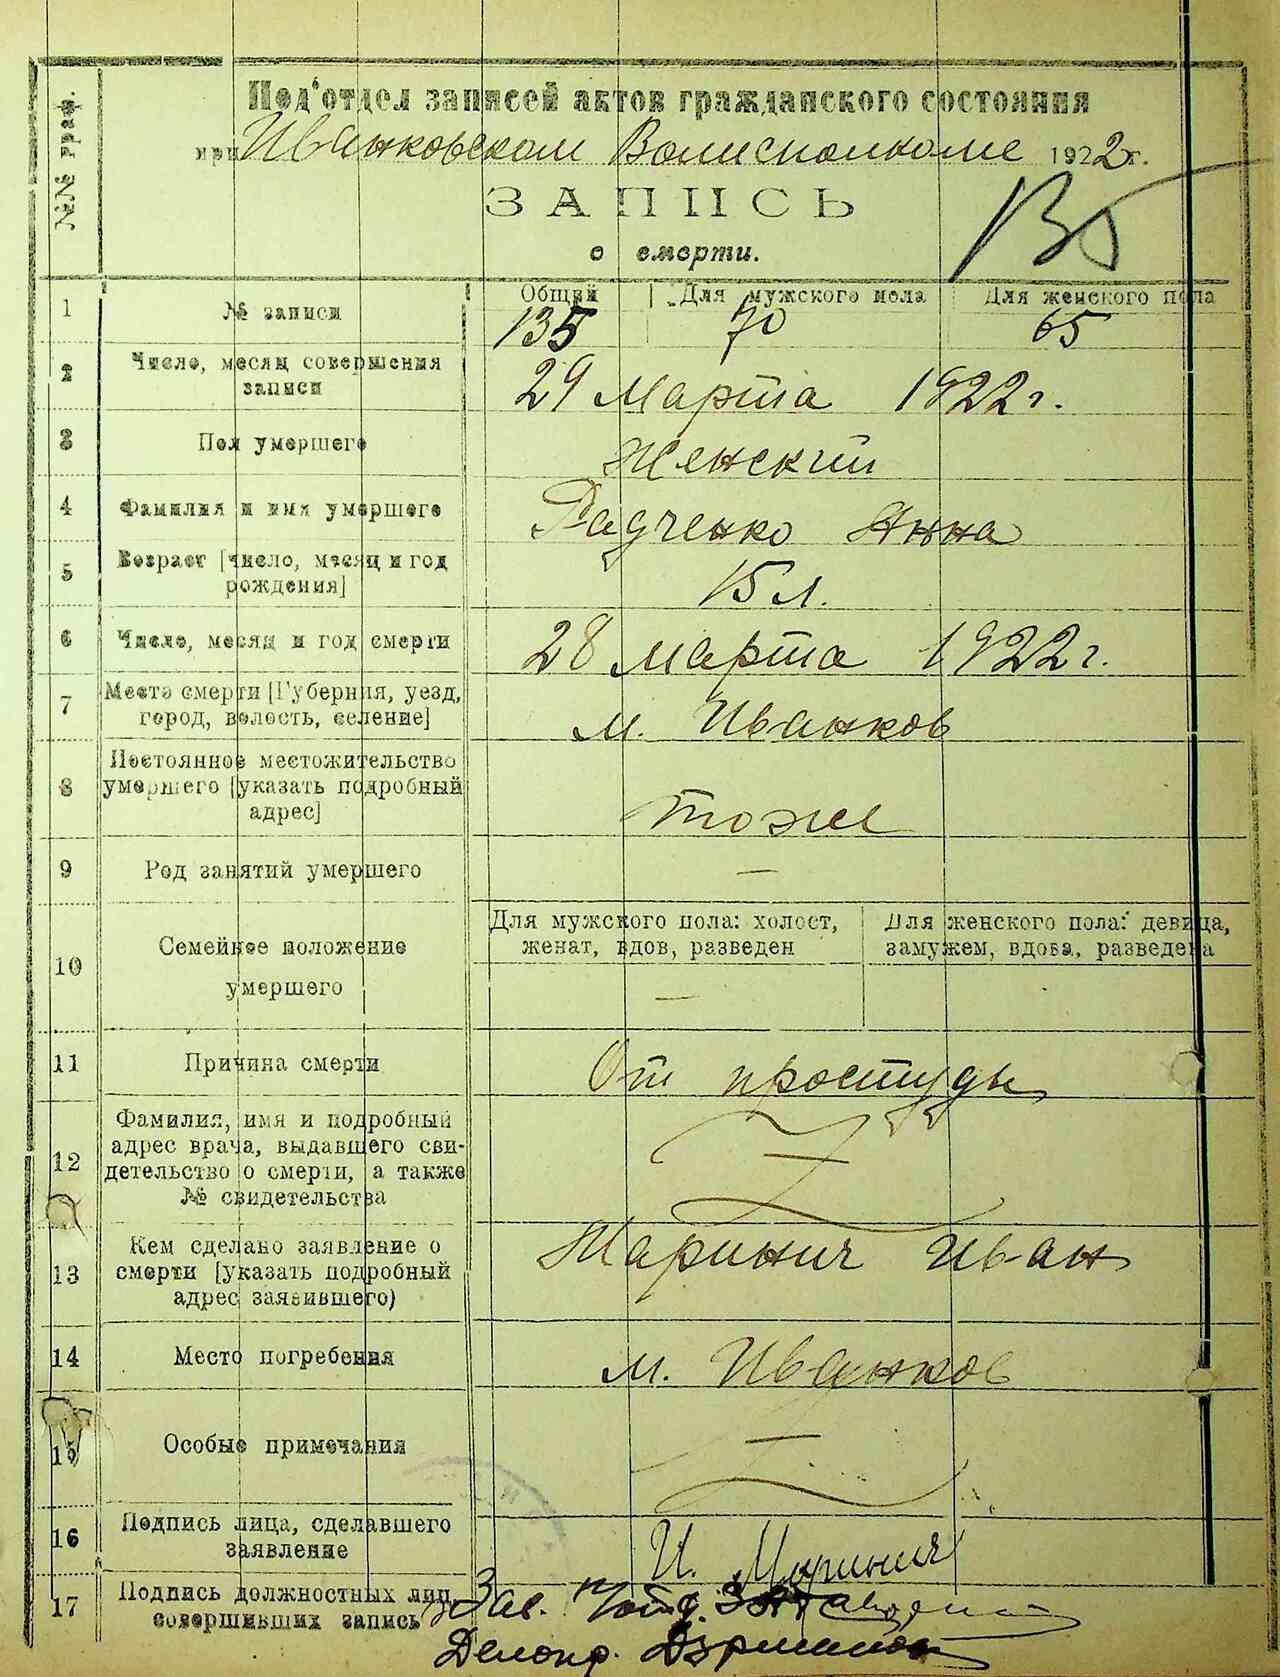 №№ граф.
Под'отдел записей актов гражданского состояния
при Иванковском Волисполкоме 1922 г.
ЗАПИСЬ
о смерти.
135
1 № записи Общий Для мужского пола Для женского пола
135 70 65
2 Число, месяц совершения
записи
29 Марта 1922 г.
3 Пол умершего Женский
4 Фамилия и имя умершего Радченко Анна
5 Возраст [число, месяц и год
рождения]
15 л.
6 Число, месяц и год смерти 28 Марта 1922 г.
7 Место смерти [Губерния, уезд,
город, волость, селение]
м. Иванков
8 Постоянное местожительство
умершего [указать подробный
адрес]
тоже
9 Род занятий умершего —
10 Семейное положение
умершего
Для мужского пола: холост,
женат, вдов, разведен
Для женского пола: девица,
замужем, вдова, разведена
—
11 Причина смерти От простуды
12 Фамилия, имя и подробный
адрес врача, выдавшего сви-
детельство о смерти, а также
№ свидетельства
—
13 Кем сделано заявление о
смерти [указать подробный
адрес заявившего)
Маринич Иван
14 Место погребения м. Иванков
15 Особые примечания —
16 Подпись лица, сделавшего
заявление
И. Маринич
17 Подпись должностных лиц,
совершивших запись
Зав.
Делопр.